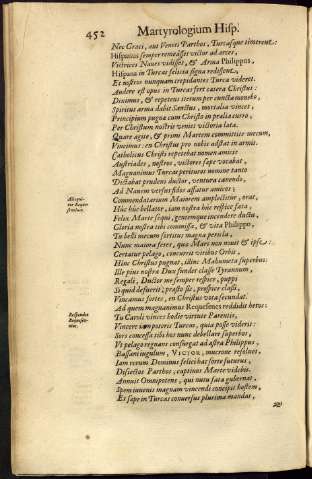 452
Martyrologium Hisp.
Nec Graci, aut Veneti Parthos, Turcasque timerent:
Hispanus semper remeasset victor ad arces,
Victrices Naues vidisset, & Arma Philippus,
Hispana in Turcas felicia signa redissent,
Et nostros nunquam crepidantes Turca videret.
Audere est opus in Turcas fert casera Christus:
Diximus, & repetens iterum per cuncta monendo,
Spiritus arma dabit Sanctus, mortalia vincet,
Principium pugna cum Christo in pralia curro,
Per Christum nostris venit victoria lata.
Quare age, & primi Martem committite mecum,
Vincimus: en Christus pro nobis adstat in armis.
Catholicus Christi repetebat nomen amicis
Austriades, nostros, victores sape vocabat,
Magnanimus Turcas perituros nomine tanto
Dictabat prudens ductor, ventura canendo,
Ad Nauem versus fidos affatur amicos:
Commendatarium Maiorem amplectitur, orat,
Huc huc bellator, iam nostra huc respice fata,
Felix Marte sequi, gentemque incendere ductu,
Gloria nostra tibi commissa, & vita Philippo,
Tu belli mecum sortitus magna pericla,
Nunc maiora feres, quo Mars non muit & ipse:
Certatur pelago, concurrit viribus Orbis,
Hinc Christus pugnat, illinc Mahumeta superbus:
Ille pius nostra Dux fundet classe Tyrannum,
Regali, Ductor me semper respice, puppi
Si quid defuerit, prasto sis, prospice classi,
Vincamus fortes, en Christus vota secundat.
Ad quem magnanimus Requesenes reddidit heros:
Tu Caroli vinces hodie virtute Parentis,
Vincere iam poteris Turcas, quia posse videris:
Sors concessa tibi hos nunc debellare superbos,
Vt pelago regnans consurgat ad astra Philippus,
Bassani iugulum, VICTOR, mucrone resolues,
Iam rerum Dominus felici hac sorte futurus,
Disiectos Parthos, captiuos Marte videbis.
Annuit Omnipotens, qui nutu fata gubernat,
Spem iuuenis magnam vincendi concipit hastem,
Et sape in Turcas conuersus plurima mandat,